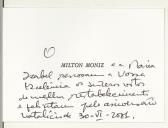 MILTON MONIZ e a Maria
Isabel renovam a Vossa
Excelência os sinceros votos
de melhor restabelecimento
e felicitam pelo aniversário
natalício de 30-VI-